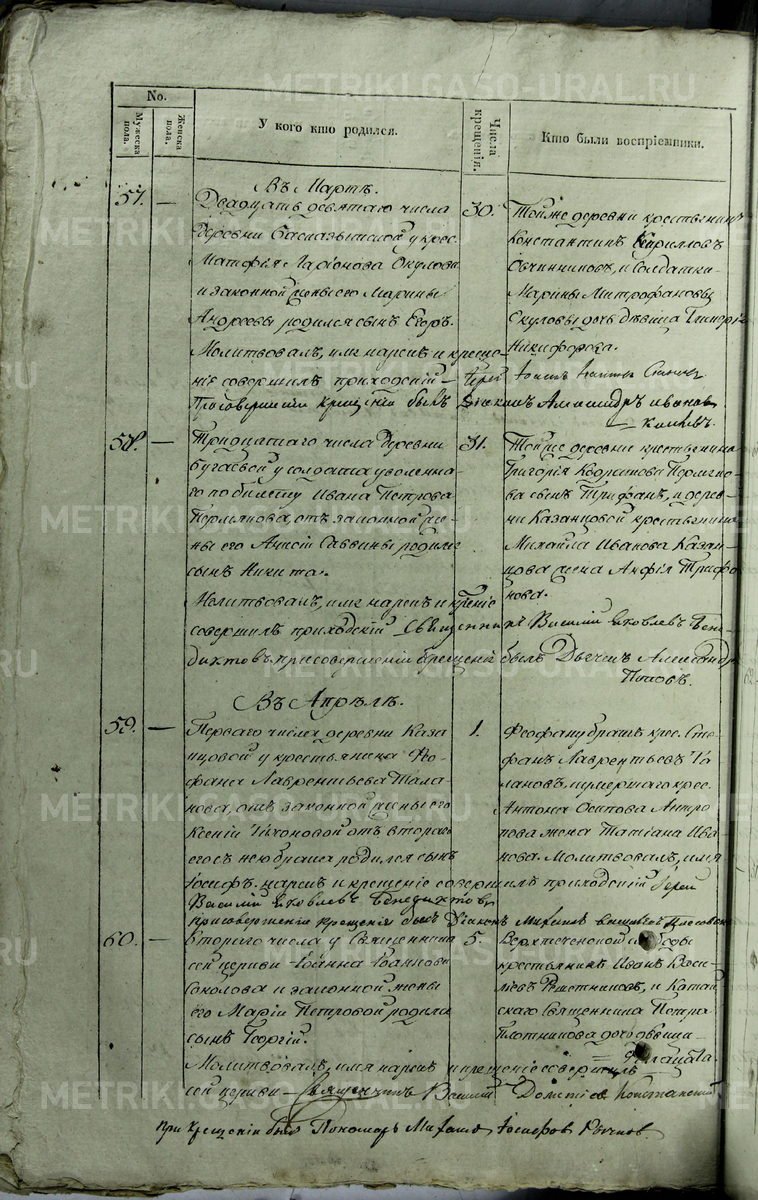 METRIKI.GASO-URAL.RU
No.
Мужеска пола.
Женска пола.
У кого кто родился.
Числа крещенія.
Кто были воспріемники.
Въ Мартѣ.
57. —
Двадцать девятаго числа
деревни у крес.
Матфія Ларіонова Окулова
и законной жены его Марины
Андреевы родился сынъ Егоръ.
Молитвовалъ, имя нарекъ и креще-
ніе совершилъ приходскій
При совершеніи крещенія былъ Діаконъ Александръ Иванов
30.
Тойже деревни крестьянинъ
Константинъ Кирилловъ
Овчинниковъ, и Солдатки
Марины Митрофановы
Окуловы дочь дѣвица
Никифорова.
Іерей
58. —
Тридцатаго числа деревни
Бугаевой у солдата уволенна-
го по билету Ивана Петрова
Пермякова, отъ законной же-
ны его Саввины родился
сынъ Никита.
Молитвовалъ, имя нарекъ и крещеніе
совершилъ приходскій Священникъ Василій Яковлевъ Бене-
диктовъ, при совершеніи крещенія былъ Дьячекъ Александръ
Поповъ.
31.
Тойже деревни крестьянина
Григорія Кодратова Пермяко-
ва сынъ Трифанъ, и дерев-
ни Казанцовой крестьянина
Михайла Иванова Казан-
цова жена Анфія Трифо-
нова.
Въ Апрѣлѣ.
59. —
Перваго числа деревни Каза-
нцовой у крестьянина Фео-
фана Лаврентьева Тала-
нова, отъ законной жены его
Ксеніи Тихоновой отъ втораго
его съ нею брака родился сынъ
Іосифъ. нарекъ и крещеніе совершилъ приходскій Іерей
Василій Яковлевъ Бенедиктовъ
при совершеніи крещенія былъ Діаконъ
1.
Феофану братъ крес. Сте-
фанъ Лаврентьевъ Та-
лановъ, умершаго крес.
Антона Осипова Антро-
пова жена Татіана Ива-
нова. Молитвовалъ, имя
60. —
Втораго числа у Священника
сей церкви Іоанна Іоаннова
Соколова и законной жены
его Маріи Петровой родился
сынъ Георгій.
Молитвовалъ, имя нарекъ и крещеніе совершилъ
сей церкви Священникъ Василій
5.
слободы
крестьянинъ Иванъ Васи-
льевъ Решетниковъ, и Катай-
скаго Священника Петра
Плотникова дочь дѣвица
При крещеніи былъ Пономарь Михаилъ